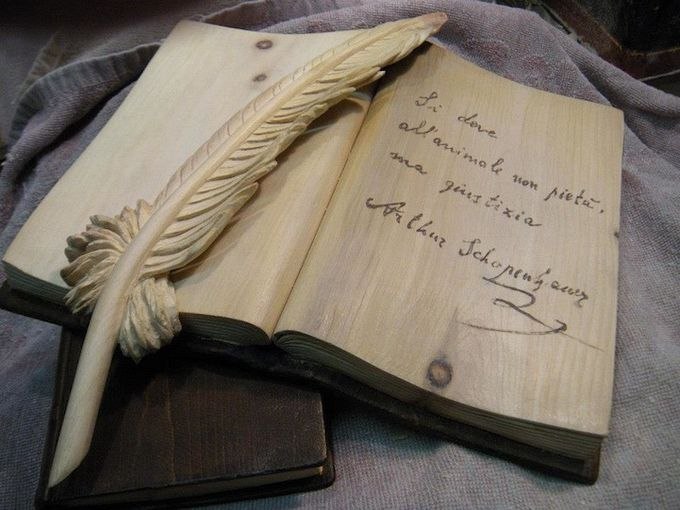 Si dove
all'animale non pietà,
ma giustizia
Arthur Schopenhauer